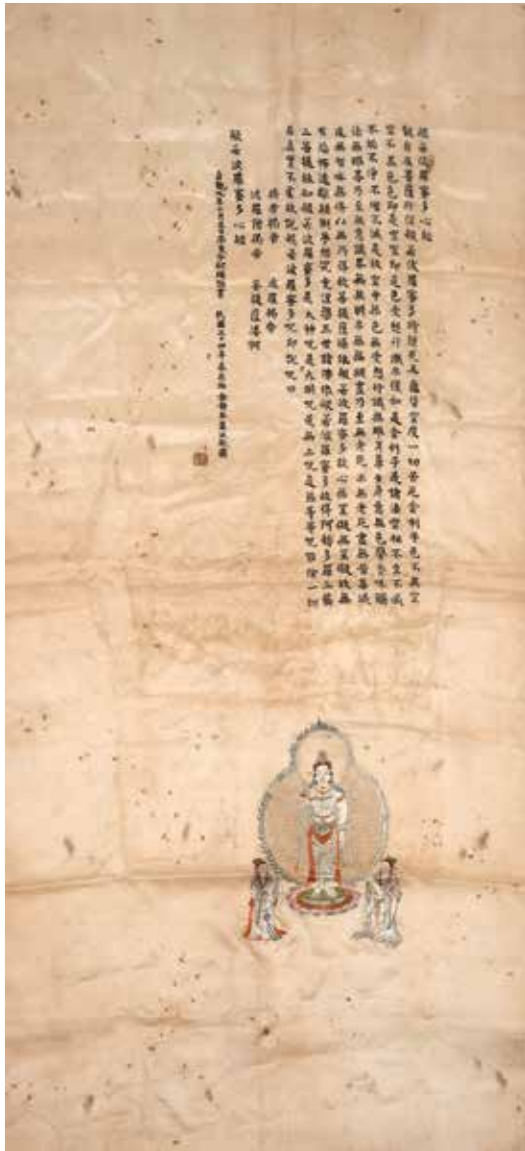 般若波羅蜜多心經
觀自在菩薩行深般若波羅蜜多時照見五蘊皆空度一切苦厄舍利子色不異空
空不異色色即是空空即是色受想行識亦復如是舍利子是諸法空相不生不滅
不垢不淨不增不減是故空中無色無受想行識無眼耳鼻舌身意無色聲香味觸
法無眼界乃至無意識界無無明亦無無明盡乃至無老死亦無老死盡無苦集滅
道無智亦無得以無所得故菩提薩埵依般若波羅蜜多故心無罣礙無罣礙故無
有恐怖遠離顛倒夢想究竟涅槃三世諸佛依般若波羅蜜多故得阿耨多羅三藐
三菩提故知般若波羅蜜多是大神咒是大明咒是無上咒是無等等咒能除一切
苦真實不虛故說般若波羅蜜多咒即說咒曰
揭帝揭帝 波羅揭帝
波羅僧揭帝 菩提薩婆訶
般若波羅蜜多心經
貞觀九年十月旦日率更令歐陽詢書 民國三十四年春